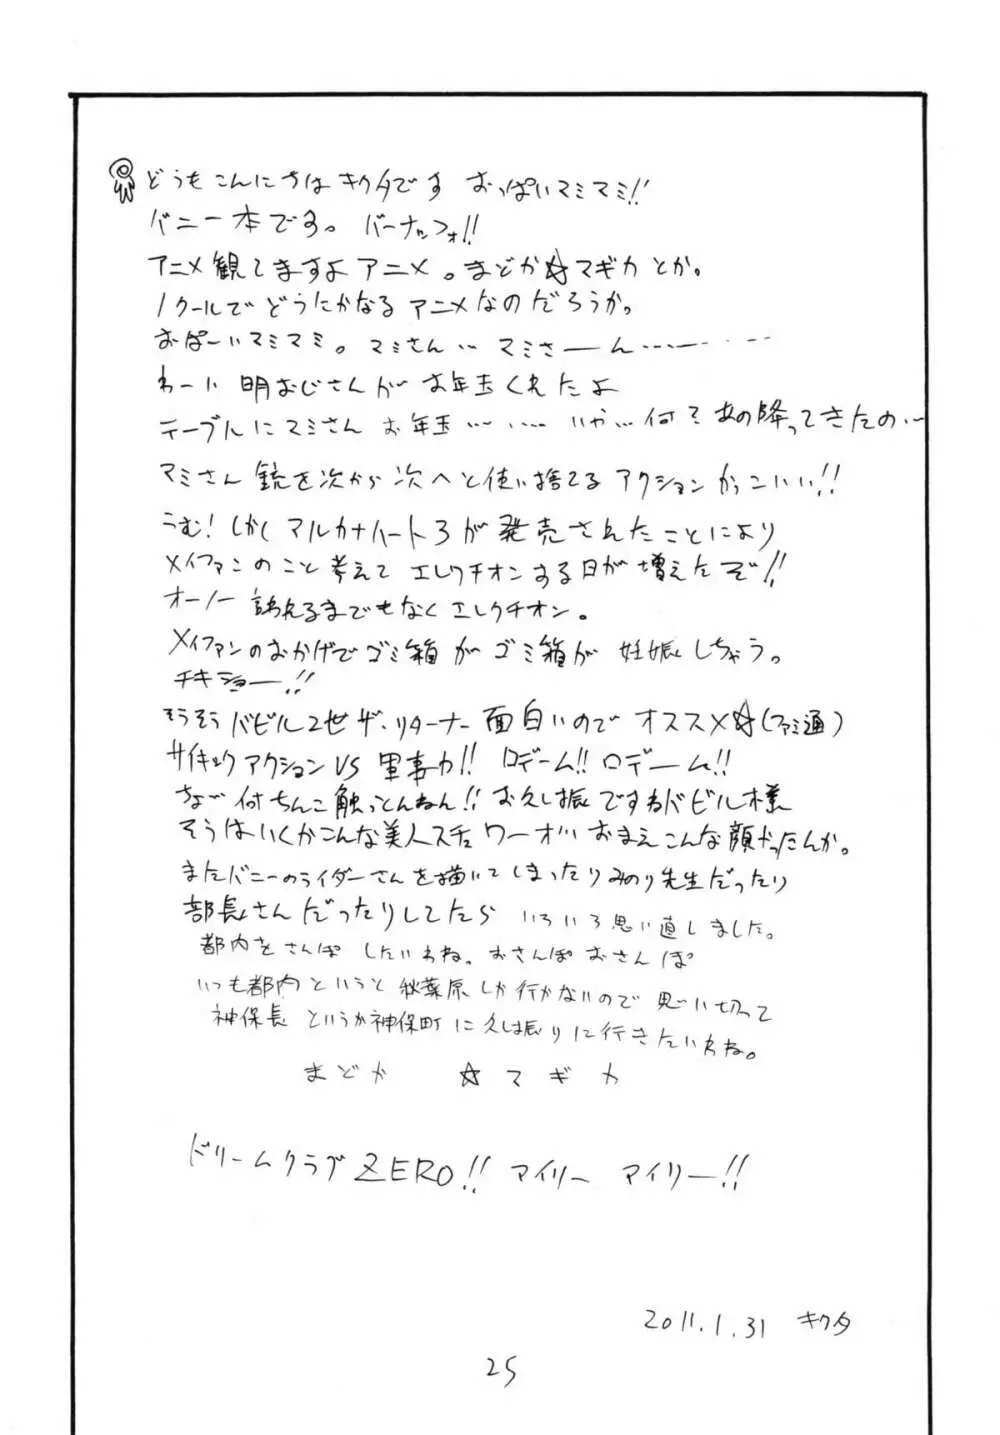 どうもこんにちはキクタです おっぱいマミマミ!!
バニー本です。バーナッフォ!!
アニメ観てますよアニメ。まどか☆マギカとか。
1クールでどうにかなるアニメなのだろうか。
おぱーいマミマミ。マミさん… マミさーん…ー……
わーい 明おじさんが お年玉くれたよ
テーブルにマミさん お年玉……… いや…何てもの降ってきたの…
マミさん 銃を次から次へと使い捨てるアクションかっこいい!!
うむ!しかしアルカナハート3が発売されたことにより
メイファンのこと考えてエレクチオンする日が増えたぞ!!
オーノー 訴えるまでもなくエレクチオン。
メイファンのおかげでゴミ箱がゴミ箱が 妊娠しちゃう。
チキショー!!
そうそうバビル2世ザ・リターナー面白いのでオススメ☆(ファミ通)
サイキックアクションVS軍事力!! ロデーム!!ロデーム!!
ちょ 何ちんこ触っとんねん!! お久し振ですねバビル様
そうはいくかこんな美人スチ ワーオ!! おまえこんな顔やったんか。
またバニーのライダーさんを描いてしまったりみのり先生だったり
部長さんだったりしてたら いろいろ思い直しました。
都内をさんぽ したいわね。おさんぽおさんぽ
いつも都内というと 秋葉原しか行かないので 思い切って
神保長 というか神保町に久し振りに行きたいわね。
まどか ☆マギカ
ドリームクラブZERO!! アイリー アイリー!!
2011.1.31 キクタ
25